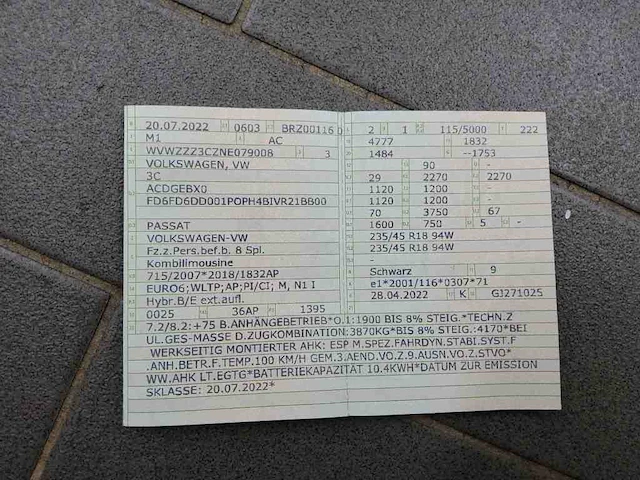 20.07.2022 0603 BRZ00116 0
M1 AC
WVWZZZ3CZNE079008 3
VOLKSWAGEN, VW
3C
ACDGEBX0
FD6FD6DD001POPH4BIVR21BB00
PASSAT
VOLKSWAGEN-VW
Fz.z.Pers.bef.b. 8 Spl.
Kombilimousine
715/2007*2018/1832AP
EURO6;WLTP;AP;PI/CI; M, N1 I
Hybr.B/E ext.aufl.
0025 36AP 1395
2 1 115/5000 222
4777 1832
1484 --1753
90 -
29 2270 2270
1120 1200 -
1120 1200 -
70 3750 67
1600 750 5 -
235/45 R18 94W
235/45 R18 94W
-
Schwarz 9
e1*2001/116*0307*71
28.04.2022 K GJ271025
7.2/8.2:+75 B.ANHÄNGEBETRIEB*O.1:1900 BIS 8% STEIG.*TECHN.Z
UL.GES-MASSE D.ZUGKOMBINATION:3870KG*BIS 8% STEIG.:4170*BEI
WERKSEITIG MONTIERTER AHK: ESP M.SPEZ.FAHRDYN.STABI.SYST.F
.ANH.BETR.F.TEMP.100 KM/H GEM.3.AEND.VO.Z.9.AUSN.VO.Z.STVO*
WW.AHK LT.EGTG*BATTERIEKAPAZITÄT 10.4KWH*DATUM ZUR EMISSION
SKLASSE: 20.07.2022*